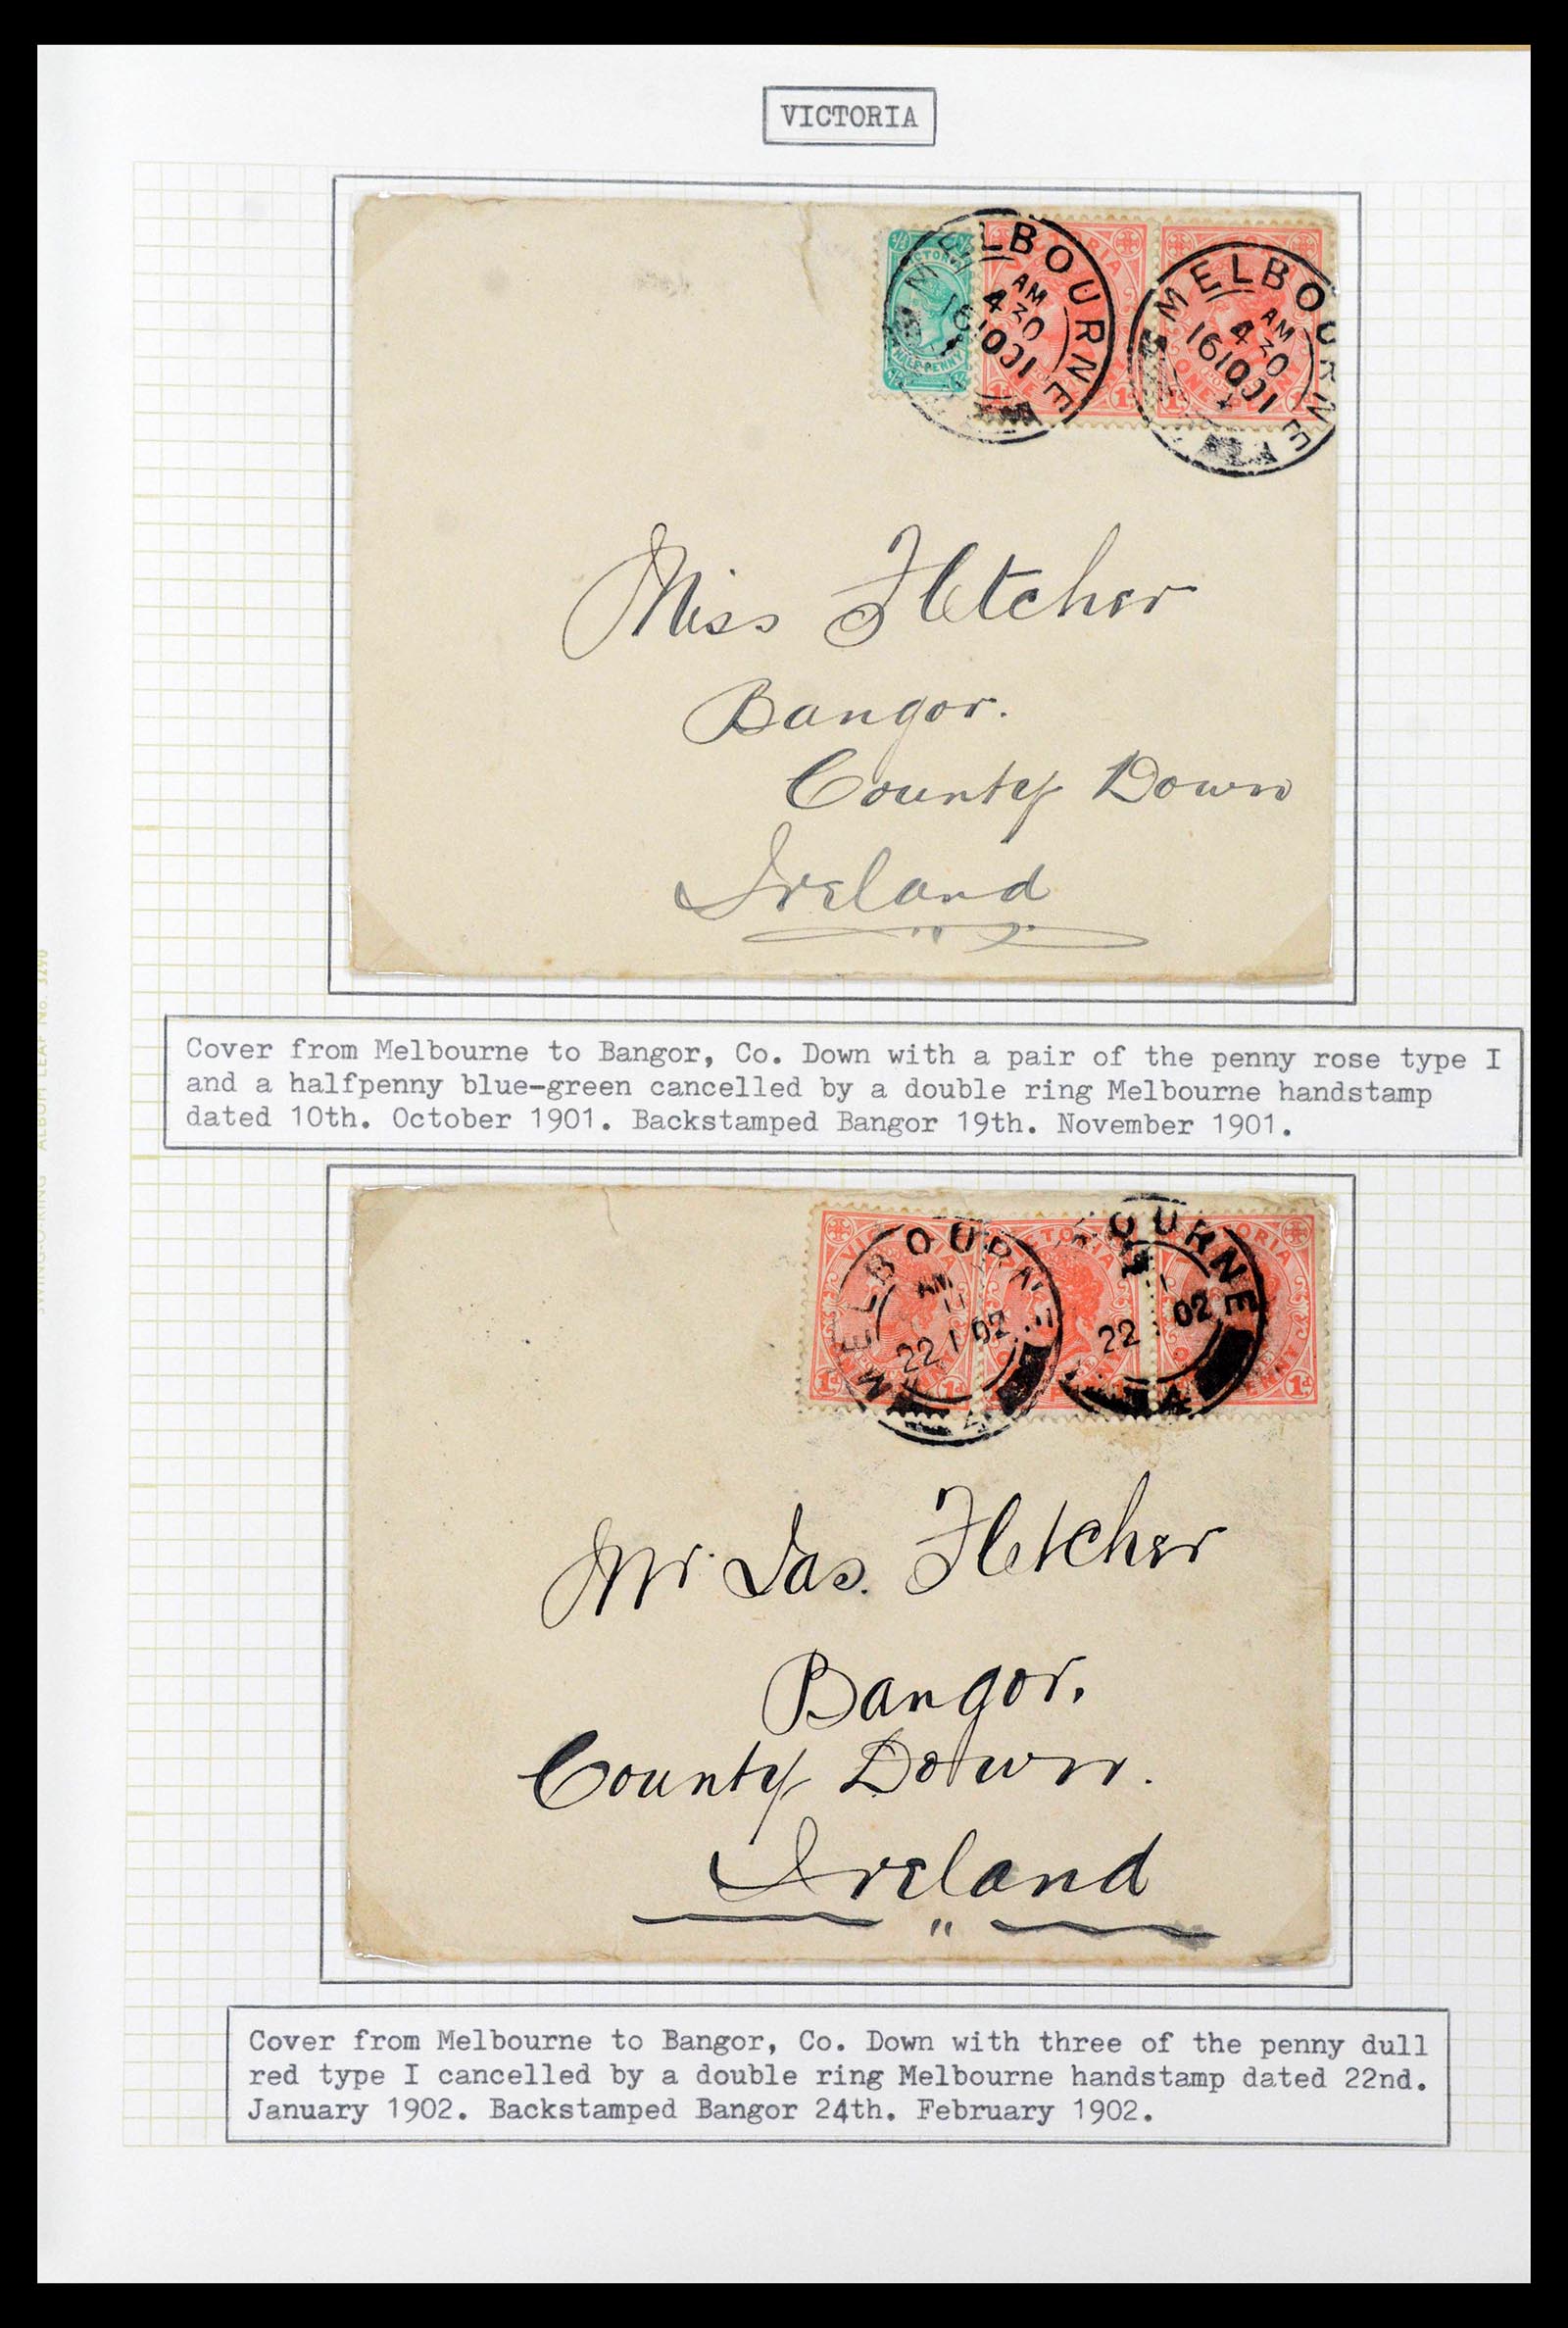 VICTORIA
MELBOURNE
AM
4 30
16 10 01
MELBOURNE
AM
4 30
16 10 01
VICTORIA
HALF-PENNY
1d
1d
1d
Miss Fletcher
Bangor.
County Down
Ireland
Cover from Melbourne to Bangor, Co. Down with a pair of the penny rose type I
and a halfpenny blue-green cancelled by a double ring Melbourne handstamp
dated 10th. October 1901. Backstamped Bangor 19th. November 1901.
VICTORIA
VICTORIA
VICTORIA
MELBOURNE
AM
11
22 1 02
OURNE
22 02
1d
1d
PENNY
1d
Mr. Jas. Fletcher
Bangor.
County Down.
Ireland
Cover from Melbourne to Bangor, Co. Down with three of the penny dull
red type I cancelled by a double ring Melbourne handstamp dated 22nd.
January 1902. Backstamped Bangor 24th. February 1902.
ALBUM LEAF No. 3290